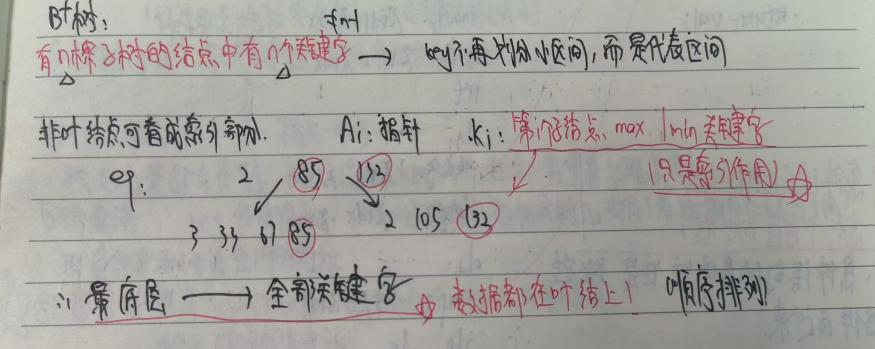 B+树: ≠n-1
有n棵子树的结点中有n个关键字 → key不再划分小区间,而是代表区间
非叶结点可看成索引部分. Ai:指针 Ki:第i个子结点 max/min 关键字
eg: 2 85 132 (只是索引作用)☆
3 33 67 85 2 105 132
∴ 最底层 → 全部关键字 ☆ 数据都在叶结上! (顺序排列)